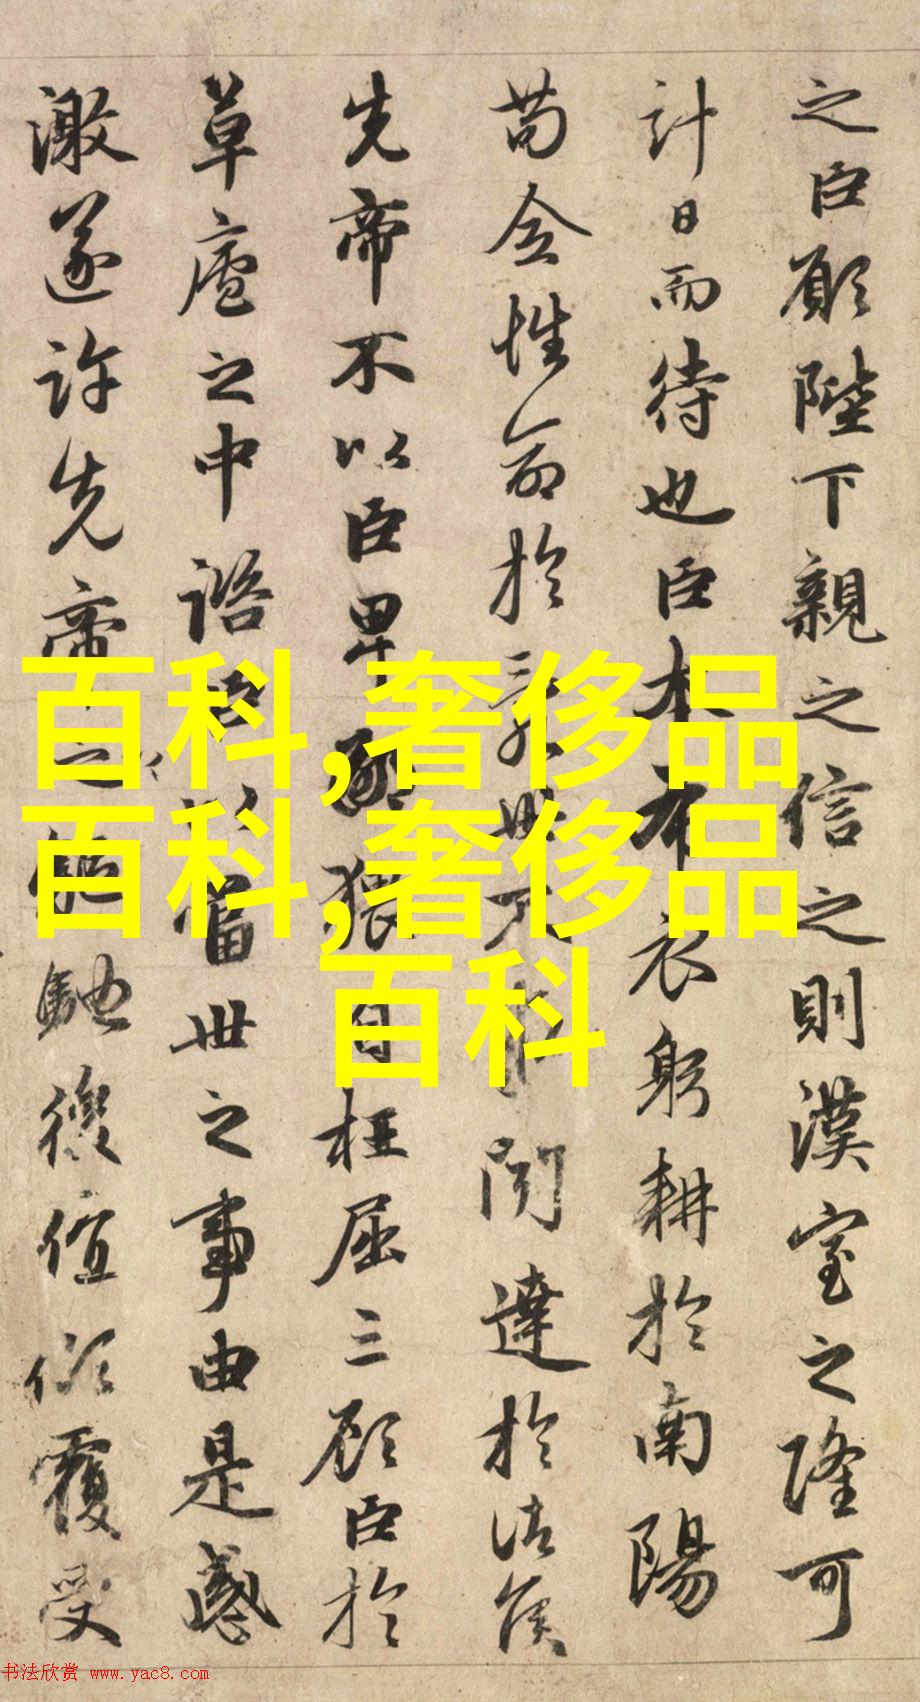 之臣願陛下親之信之則漢室之隆可
計日而待也臣本布衣躬耕於南陽
苟全性命於亂世不求聞達於諸侯
先帝不以臣卑鄙猥自枉屈三顧臣於
草廬之中諮臣以當世之事由是感
激遂許先帝以驅馳後值傾覆受
百科,奢侈品
百科,奢侈品
百科
书法欣赏 www.yac8.com